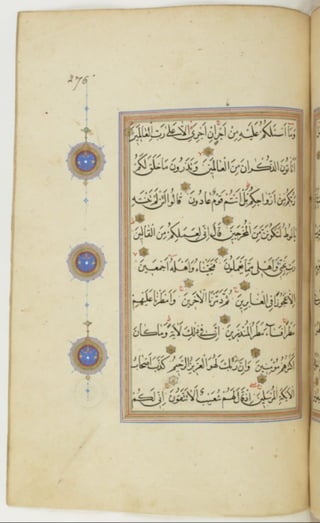 276
وَمَا اَسْئَلُكُمْ عَلَيْهِ مِنْ اَجْرٍ اِنْ اَجْرِيَ اِلَّا عَلٰى رَبِّ الْعَالَمِينَ
اَتَاْتُونَ الذُّكْرَانَ مِنَ الْعَالَمِينَ وَتَذَرُونَ مَا خَلَقَ لَكُمْ
رَبُّكُمْ مِنْ اَزْوَاجِكُمْ بَلْ اَنْتُمْ قَوْمٌ عَادُونَ قَالُوا لَئِنْ لَمْ تَنْتَهِ
يَا لُوطُ لَتَكُونَنَّ مِنَ الْمُخْرَجِينَ قَالَ اِنِّي لِعَمَلِكُمْ مِنَ الْقَالِينَ
رَبِّ نَجِّنِي وَاَهْلِي مِمَّا يَعْمَلُونَ فَنَجَّيْنَاهُ وَاَهْلَهُ اَجْمَعِينَ
اِلَّا عَجُوزًا فِي الْغَابِرِينَ ثُمَّ دَمَّرْنَا الْاٰخَرِينَ وَاَمْطَرْنَا عَلَيْهِمْ
مَطَرًا فَسَاءَ مَطَرُ الْمُنْذَرِينَ اِنَّ فِي ذٰلِكَ لَاٰيَةً وَمَا كَانَ
اَكْثَرُهُمْ مُؤْمِنِينَ وَاِنَّ رَبَّكَ لَهُوَ الْعَزِيزُ الرَّحِيمُ كَذَّبَ اَصْحَابُ
الْاَيْكَةِ الْمُرْسَلِينَ اِذْ قَالَ لَهُمْ شُعَيْبٌ اَلَا تَتَّقُونَ اِنِّي لَكُمْ